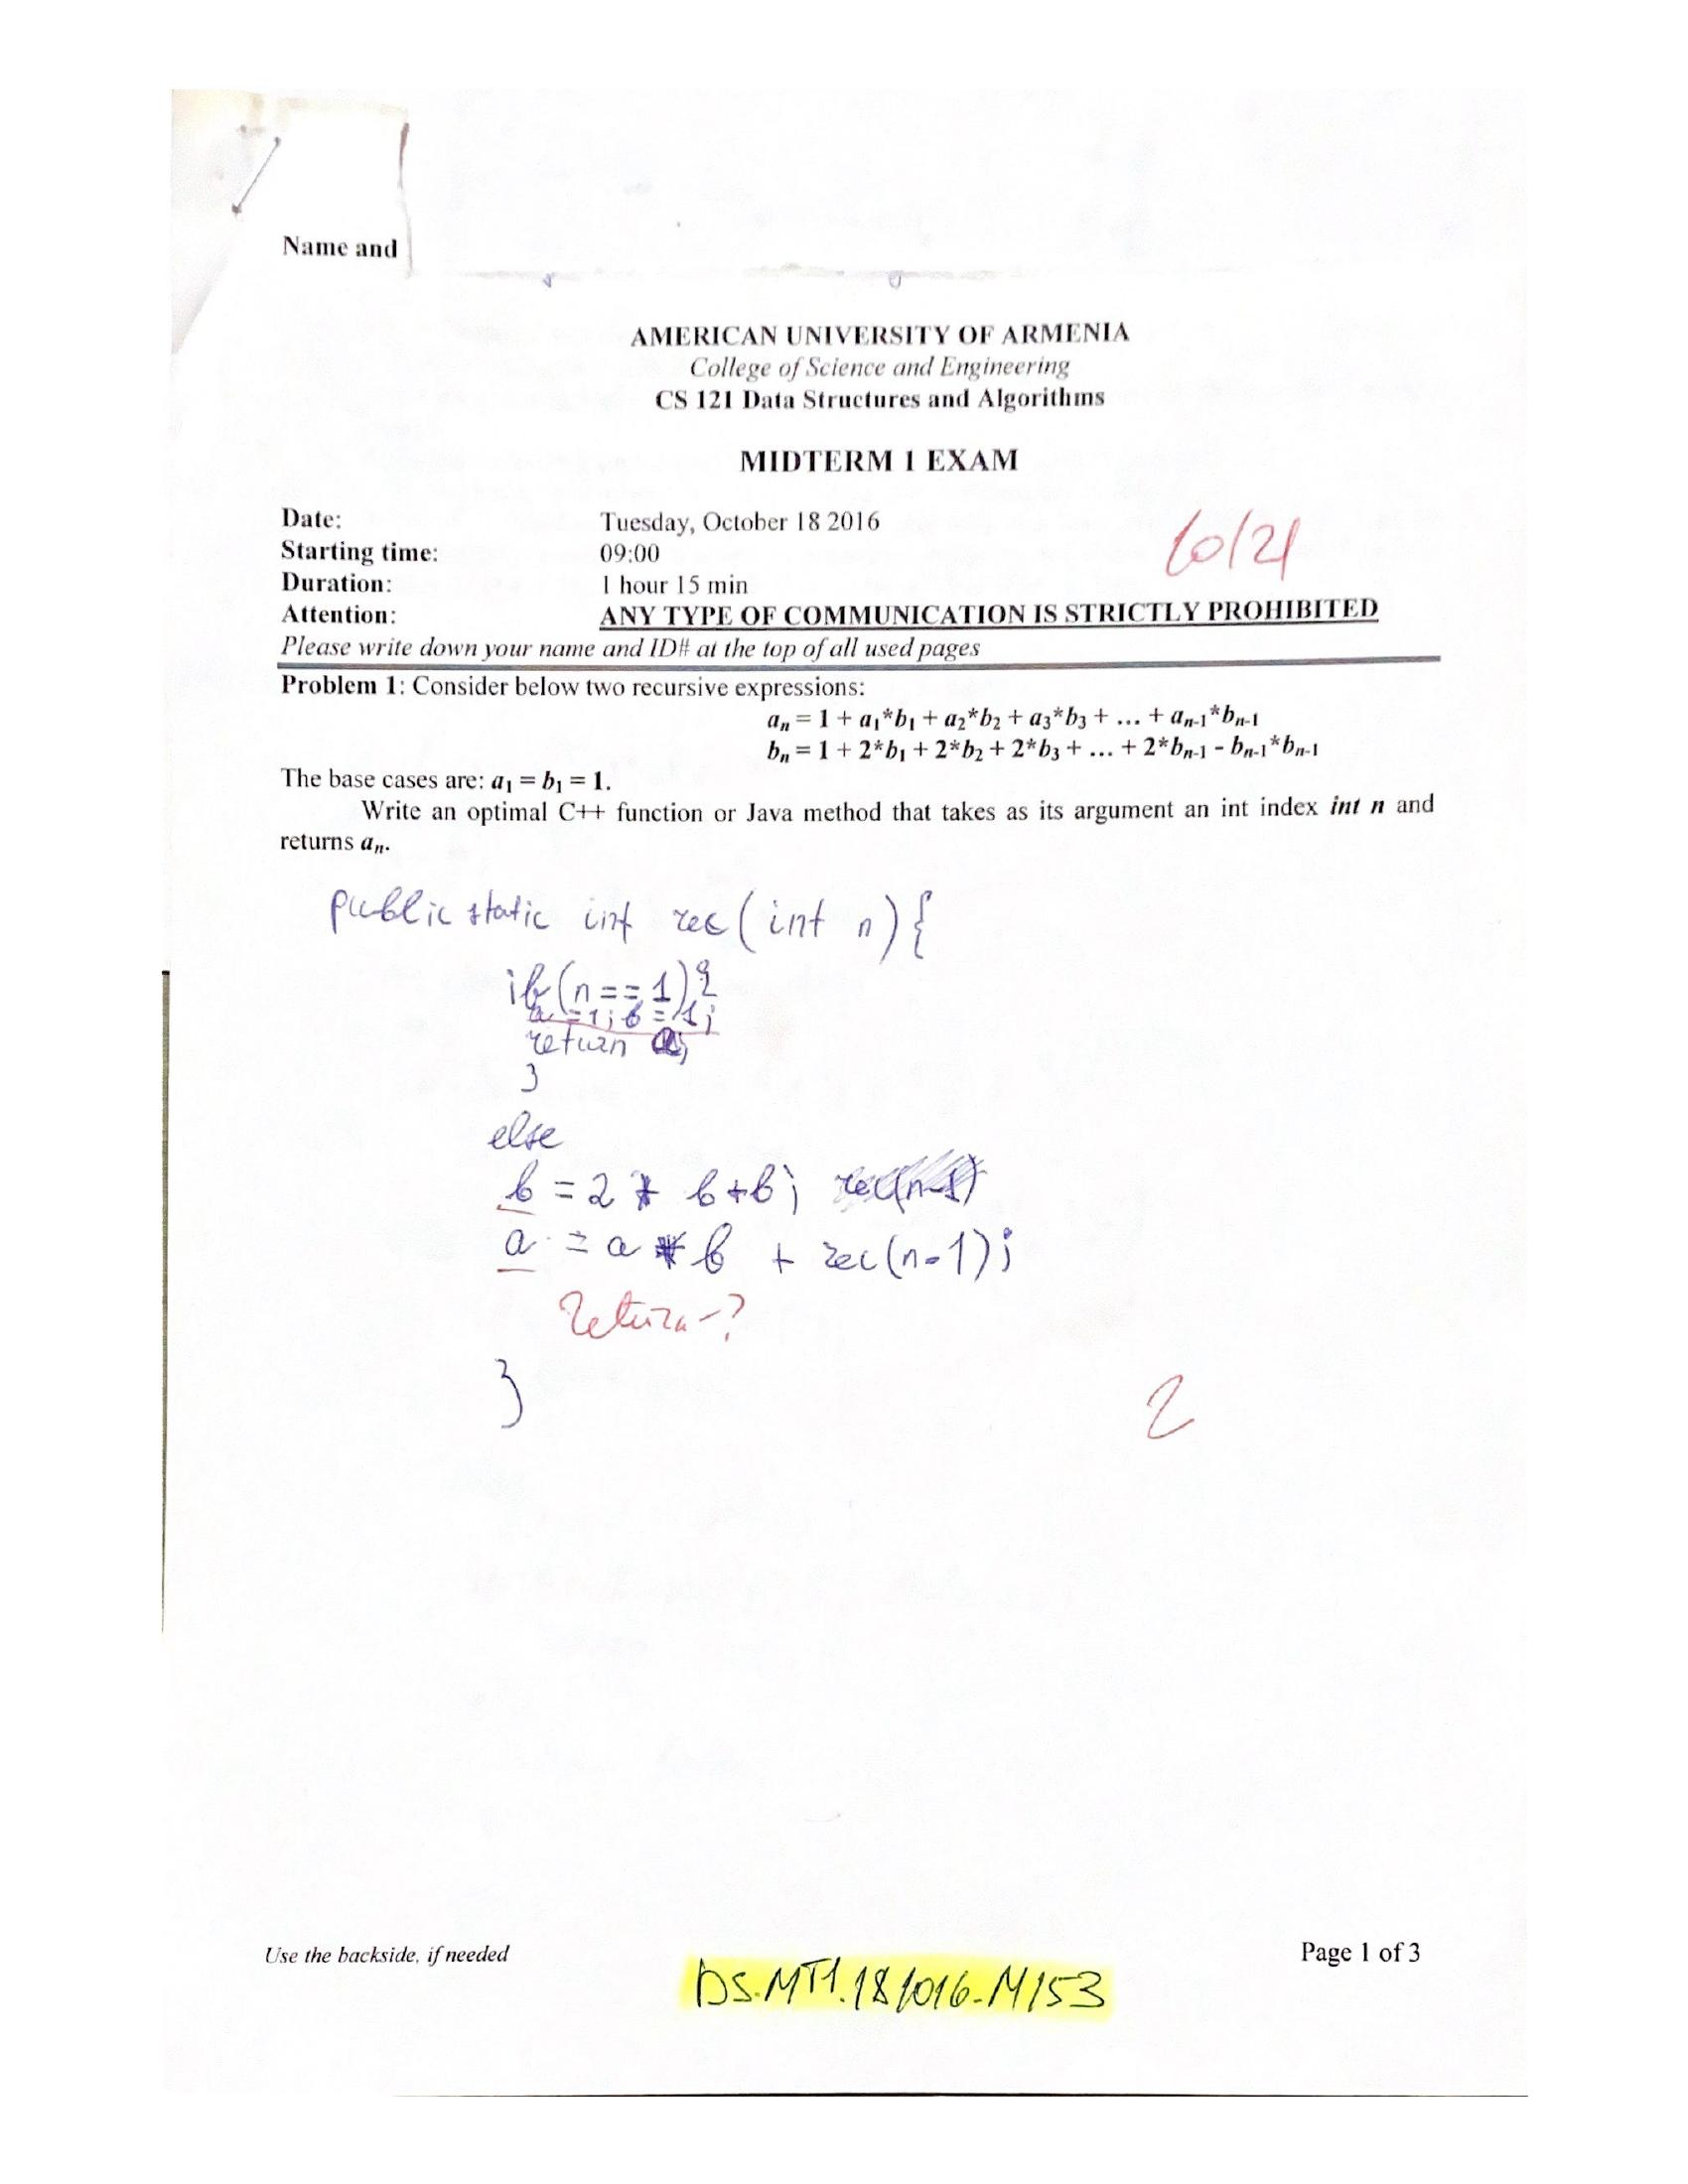 Name and
AMERICAN UNIVERSITY OF ARMENIA
College of Science and Engineering
CS 121 Data Structures and Algorithms
MIDTERM 1 EXAM
Date: Tuesday, October 18 2016
Starting time: 09:00
Duration: 1 hour 15 min
Attention: ANY TYPE OF COMMUNICATION IS STRICTLY PROHIBITED
Please write down your name and ID# at the top of all used pages
Problem 1: Consider below two recursive expressions:
aₙ = 1 + a₁*b₁ + a₂*b₂ + a₃*b₃ + ... + aₙ₋₁*bₙ₋₁
bₙ = 1 + 2*b₁ + 2*b₂ + 2*b₃ + ... + 2*bₙ₋₁ - bₙ₋₁*bₙ₋₁
The base cases are: a₁ = b₁ = 1.
Write an optimal C++ function or Java method that takes as its argument an int index int n and
returns aₙ.
public static int rec(int n){
if(n==1){
a=1; b=1;
return a;
}
else
b = 2 * b+b; rec(n-1)
a = a * b + rec(n-1);
Return-?
}
2
Use the backside, if needed
Page 1 of 3
DS.MT1.181016-M153